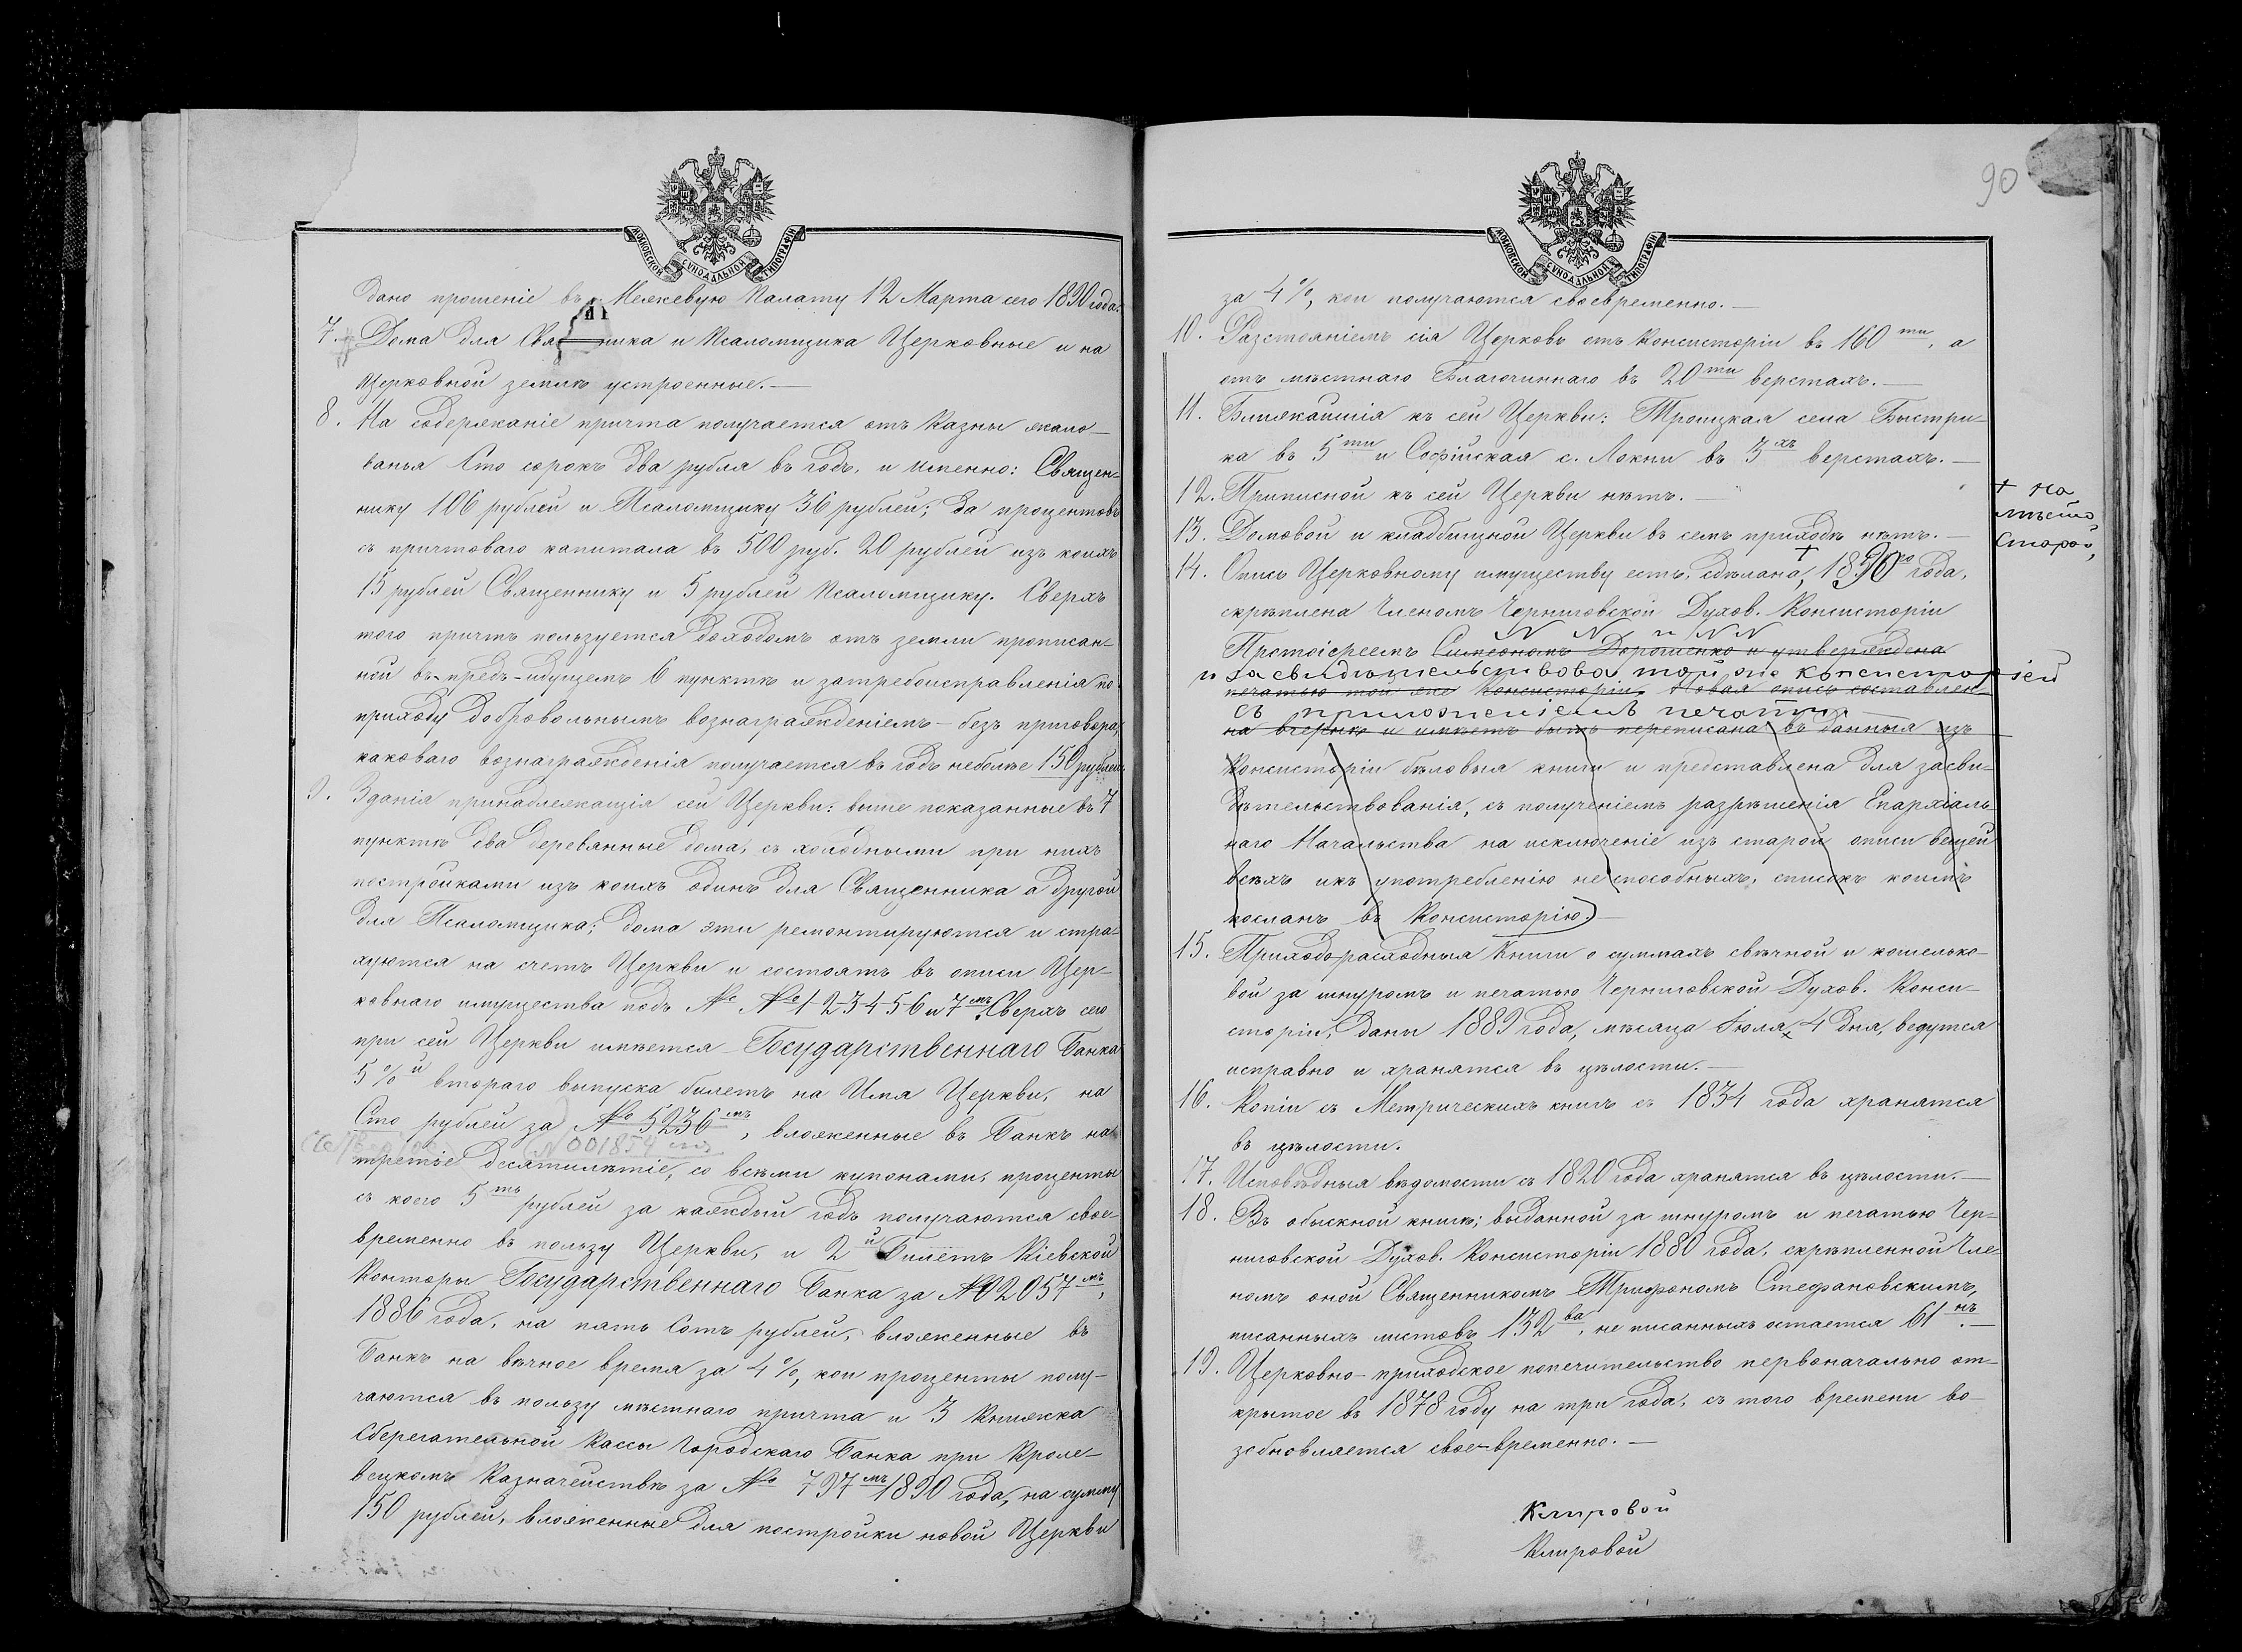 МОСКОВСКОЙ СѴНОДАЛЬНОЙ ТИПОГРАФІИ
дано прошеніе въ Межевую Палату 12 Марта сего 1890 года.
7. Дома для Священника и Псаломщика Церковные и на
Церковной землѣ устроенные.—
8. На содержаніе причта получается отъ Казны жало-
ванья Сто сорокъ два рубля въ годъ, и именно: Священ-
нику 106 рублей и Псаломщику 36 рублей; да процентовъ
съ причтоваго капитала въ 500 руб. 20 рублей изъ коихъ
15 рублей Священнику и 5 рублей Псаломщику. Сверхъ
того причтъ пользуется доходомъ отъ земли прописан-
ной въ предъ-идущемъ 6 пунктѣ и за требоисправленія по
приходу добровольнымъ вознагражденіемъ – безъ приговора,
каковаго вознагражденія получается въ годъ неболѣе 150 рублей.
9. Зданія принадлежащія сей Церкви: выше показанные въ 7
пунктѣ два деревянные дома, съ холодными при нихъ
постройками изъ коихъ одинъ для Священника а другой
для Псаломщика; дома эти ремонтируются и стра-
хуются на счетъ Церкви и состоятъ въ описи Цер-
ковнаго имущества подъ №№ 1-2-3-4-5-6 и 7мъ. Сверхъ сего
при сей Церкви имѣется Государственнаго Банка
5%й втораго выпуска билетъ на Имя Церкви, на
Сто рублей за № 5236мъ, вложенные въ Банкъ на
(N 001854
третіе десятилѣтіе, со всѣми купонами, проценты
съ коего 5ть рублей за каждый годъ получаются свое-
временно въ пользу Церкви, и 2й Билетъ Кіевской
Конторы Государственнаго Банка за № 2057мъ,
1886 года, на пять Сотъ рублей, вложенные въ
Банкъ на вѣчное время за 4%, кои проценты полу-
чаются въ пользу мѣстнаго причта и 3 Книжка
Сберегательной Кассы Городскаго Банка при Кроле-
вецкомъ Казначействѣ за № 797мъ 1890 года, на сумму
150 рублей, вложенные для постройки новой Церкви
90
МОСКОВСКОЙ СѴНОДАЛЬНОЙ ТИПОГРАФІИ
за 4%, кои получаются своевременно.—
10. Разстояніемъ сія Церковь отъ Консисторіи въ 160ти, а
отъ мѣстнаго Благочиннаго въ 20ти верстахъ.—
11. Ближайшія къ сей Церкви: Троицкая села Быстри-
ка въ 5ти и Софійская с. Локни въ 3хъ верстахъ.—
12. Приписной къ сей Церкви нѣтъ.—
13. Домовой и кладбищной Церкви въ семъ приходѣ нѣтъ.—
+ на
мѣсто
старой,
14. Опись Церковному имуществу есть, сдѣлана + 1890го года,
скрѣплена Членомъ Черниговской Духов. Консисторіи
N N и N N
Протоіереемъ Симеономъ Дорошенко и утверждена
и засвидѣтельствова той же консисторіей
печатью той же Консисторіи. Новая опись составлен-
съ приложеніемъ печати.
на вчернѣ и имѣетъ быть переписана въ данныя изъ
Консисторіи бѣловыя книги и представлена для засви-
дѣтельствованія, съ полученіемъ разрѣшенія Епархіаль-
наго Начальства на исключеніе изъ старой описи вещей
всѣхъ икъ употребленію неспособныхъ, списокъ коимъ
посланъ въ Консисторію.)—
15. Приходо-расходныя Книги о суммахъ свѣчной и кошелько-
вой за шнуромъ и печатью Черниговской Духов. Конси-
сторіи, даны 1889 года, мѣсяца Іюля 4 дня, ведутся
исправно и хранятся въ цѣлости.—
16. Копіи съ Метрическихъ книгъ съ 1834 года хранятся
въ цѣлости.
17. Исповѣдныя вѣдомости съ 1820 года хранятся въ цѣлости.—
18. Въ обыскной книгѣ; выданной за шнуромъ и печатью Чер-
ниговской Духов. Консисторіи 1880 года, скрѣпленной Чле-
номъ оной Священникомъ Трифономъ Стефановскимъ,
писанныхъ листовъ 132ва, не писанныхъ остается 61нъ.—
19. Церковно-приходское попечительство первоначально от-
крытое въ 1878 году на три года, съ того времени во-
зобновляется свое-временно.—
Клировой
Клировой